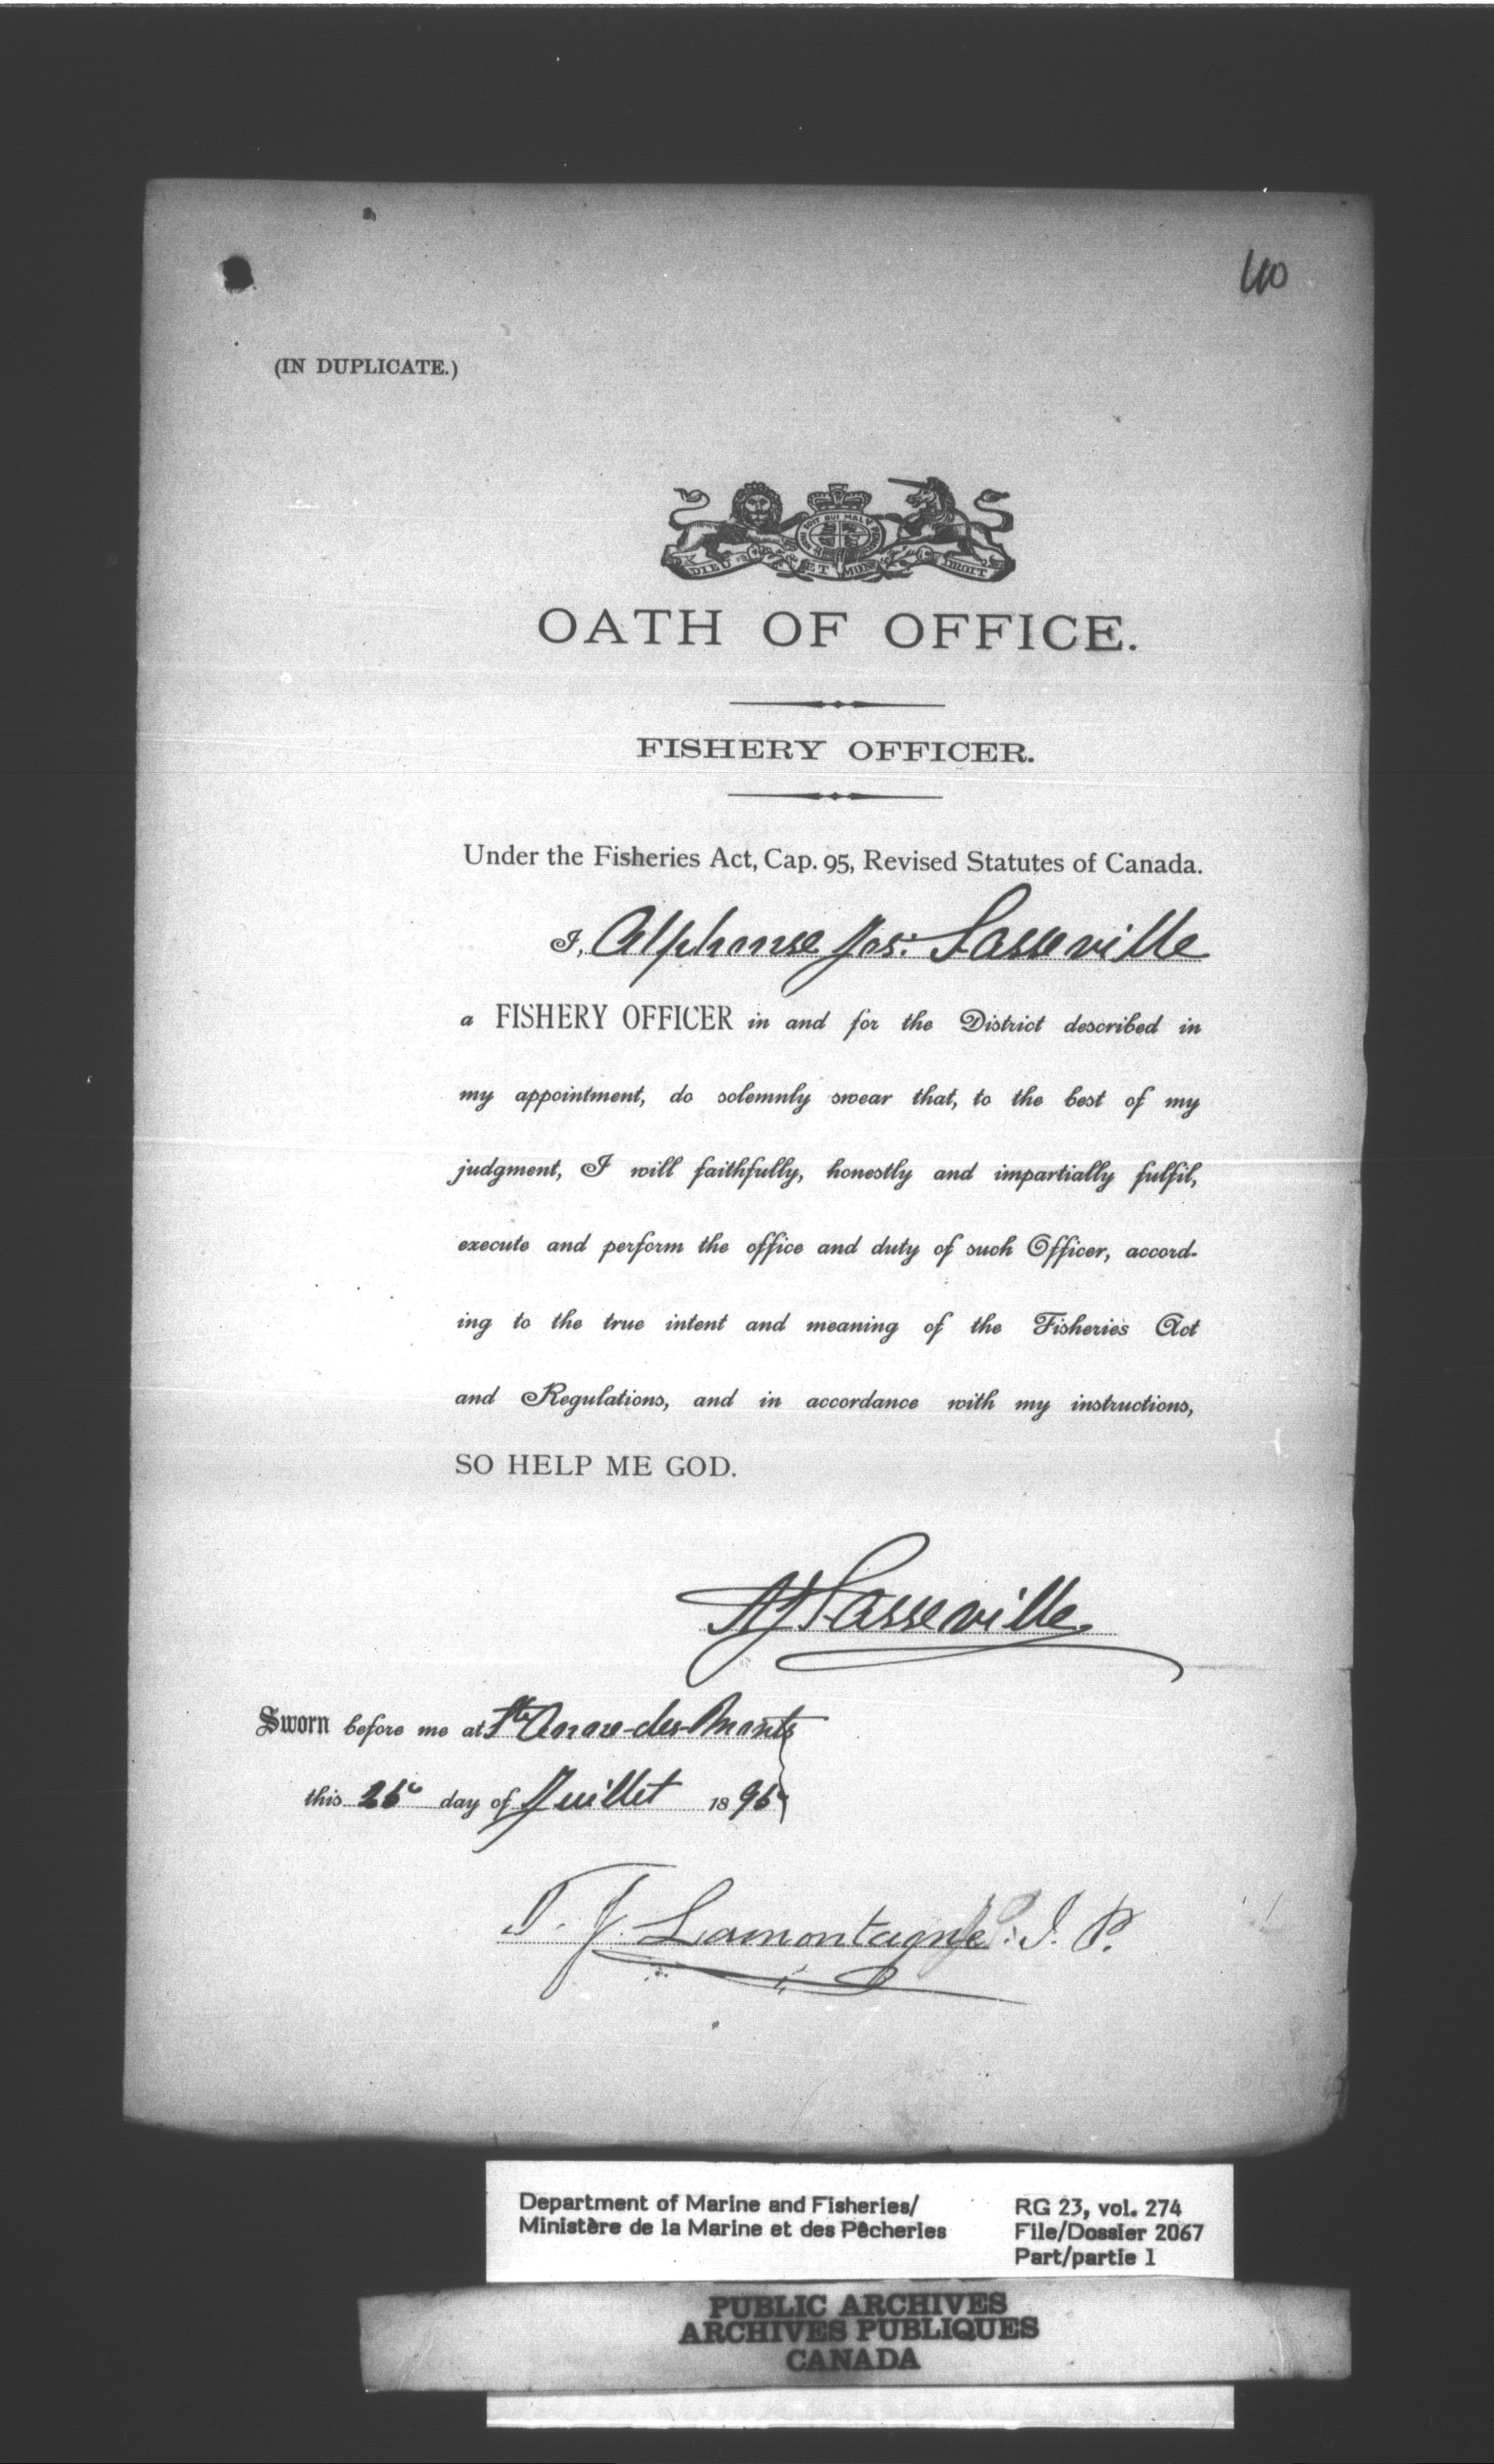 40
(IN DUPLICATE.)
DIEU ET MON DROIT
OATH OF OFFICE.
FISHERY OFFICER.
Under the Fisheries Act, Cap. 95, Revised Statutes of Canada.
I, Alphonse Jos: Sasseville
a FISHERY OFFICER in and for the District described in
my appointment, do solemnly swear that, to the best of my
judgment, I will faithfully, honestly and impartially fulfil,
execute and perform the office and duty of such Officer, accord-
ing to the true intent and meaning of the Fisheries Act
and Regulations, and in accordance with my instructions,
SO HELP ME GOD.
AJ Sasseville
Sworn before me at Ste Anne-des-Monts
this day of Juillet 1896
T. J. Lamontagne J. P.
Department of Marine and Fisheries/
Ministère de la Marine et des Pêcheries
RG 23, vol. 274
File/Dossier 2067
Part/partie 1
PUBLIC ARCHIVES
ARCHIVES PUBLIQUES
CANADA